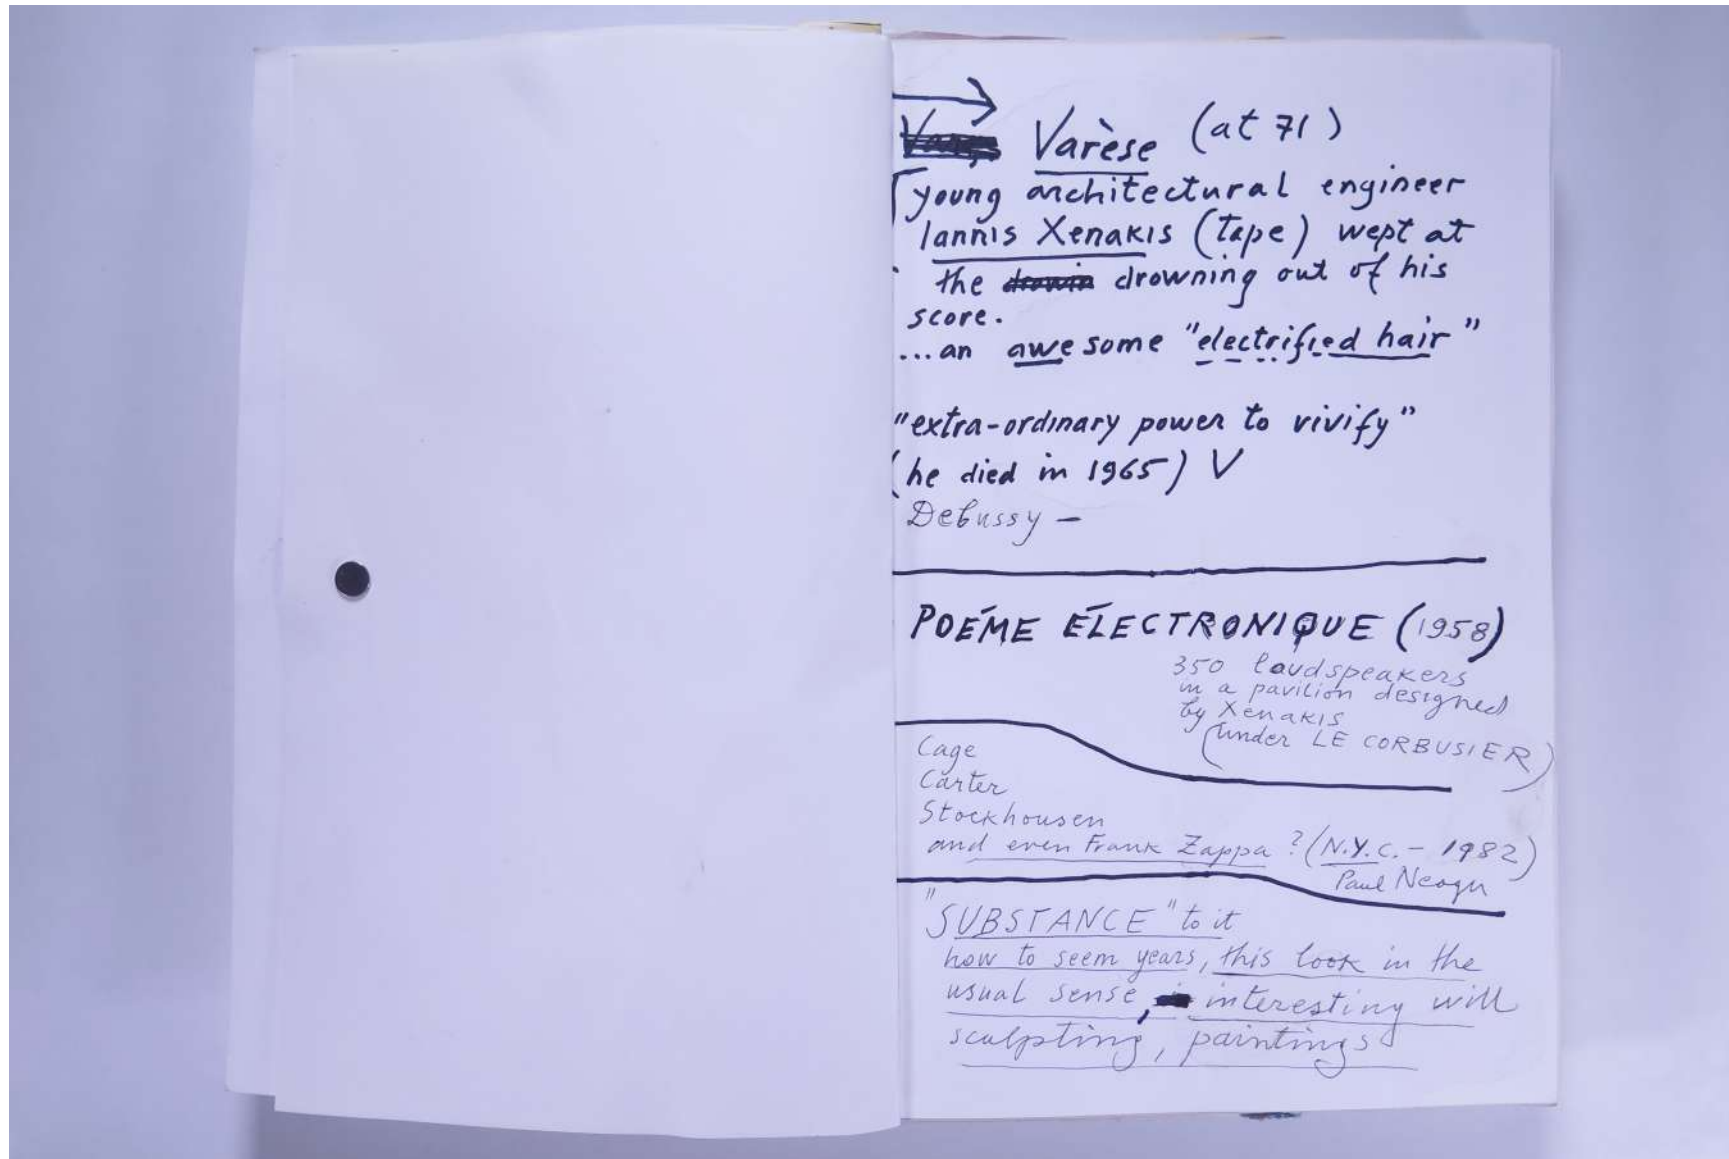 Varèse (at 71)
young architectural engineer
Iannis Xenakis (tape) wept at
the drowning out of his
score.
...an awesome "electrified hair"
"extra-ordinary power to vivify"
(he died in 1965) V
Debussy –
POÉME ÉLECTRONIQUE (1958)
350 loudspeakers
in a pavilion designed
by Xenakis
(under LE CORBUSIER)
Cage
Carter
Stockhousen
and even Frank Zappa ? (N.Y.C. – 1982)
Paul Neagu
"SUBSTANCE" to it
how to seem years, this look in the
usual sense, interesting will
sculpting, paintings